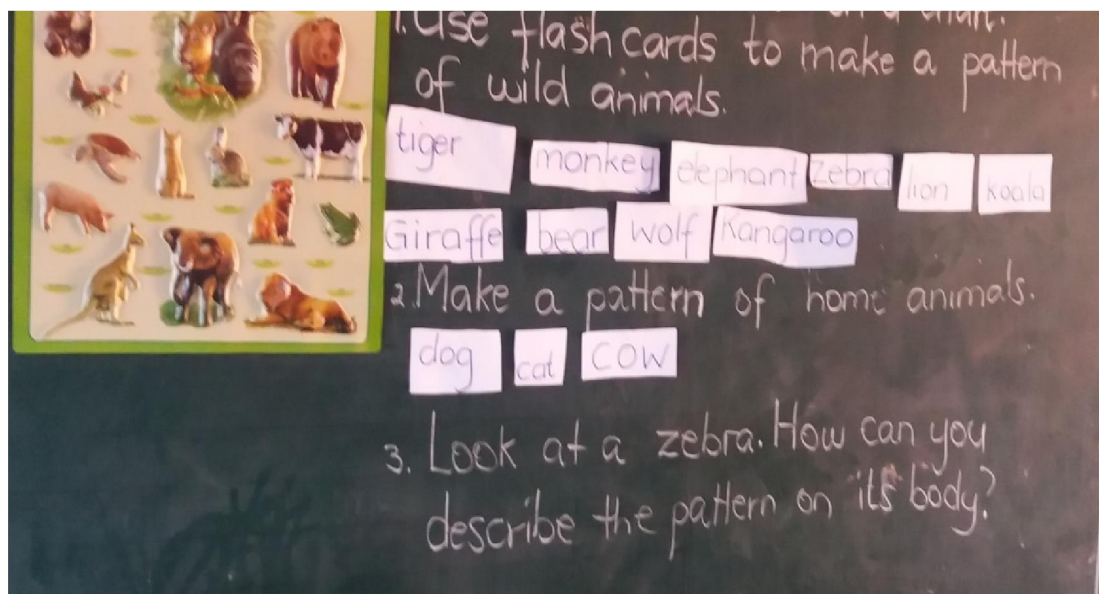 1. Use flash cards to make a pattern
of wild animals.
tiger monkey elephant Zebra lion koala
Giraffe bear wolf Kangaroo
2. Make a pattern of home animals.
dog cat cow
3. Look at a zebra. How can you
describe the pattern on its body?